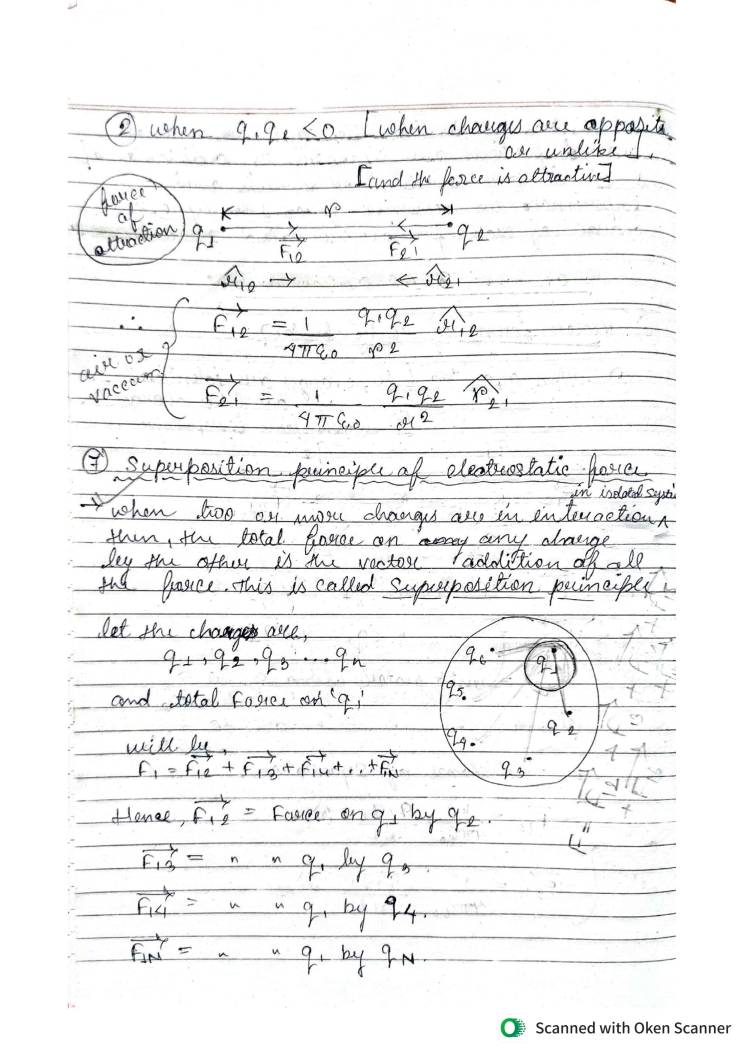 ② when q₁q₂ <0 [when charges are opposite
or unlike].
[and the force is attractive]
force
of
attraction
r
q₁ q₂
F₁₂ F₂₁
r̂₁₂ → ← r̂₂₁
∴ F₁₂ = 1/4πε₀ q₁q₂/r² r̂₁₂
air or
vaccum
F₂₁ = 1/4πε₀ q₁q₂/r² r̂₂₁
⑦ Superposition principle of electrostatic force
in isolated
→ when two or more charges are in interaction ^
then, the total force on any charge
by the other is the vector addition of all
the force. this is called superposition principle.
let the charges are,
q₁, q₂, q₃ ... qn
and total Force on 'q₁'
will be,
F₁ = F₁₂ + F₁₃ + F₁₄ + .. + F₁N
q₆ q₁
q₅
q₂
q₄
q₃
Hence, F₁₂ = Force on q₁ by q₂.
F₁₃ = " " q₁ by q₃.
F₁₄ = " " q₁ by q₄.
F₁N = " " q₁ by qN.
Scanned with Oken Scanner